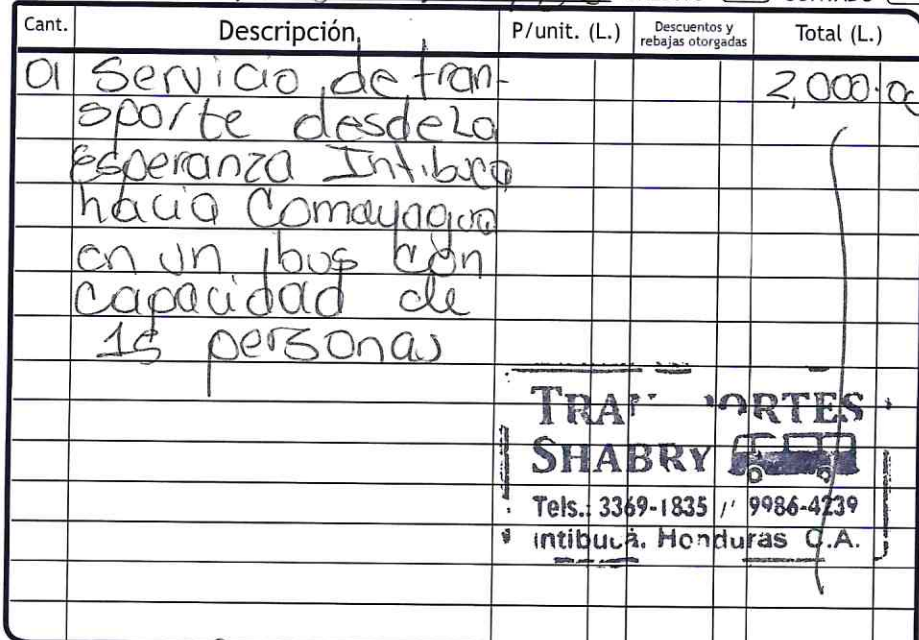 Cant. Descripción P/unit. (L.) Descuentos y rebajas otorgadas Total (L.)
01 Servicio de tran- 2,000.00
sporte desde La
Esperanza Intibuca
hacia Comayagua
en un bus con
capacidad de
15 personas
SHABRY
Tels.: 3369-1835 // 9986-4239
Intibucá, Honduras C.A.